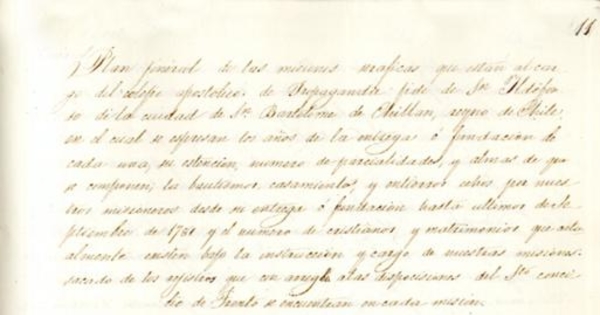 11
Plan general de las misiones seraficas que estan al car-
go del colegio apostolico de Propaganda fide de Sn. Ildefon-
so de la ciudad de Sn. Bartolome de Chillan, reyno de Chile,
en el cual se espresan los años de la entrega ó fundacion de
cada una, su estencion, numero de parcialidades, y almas de que
se componen; los bautismos, casamientos, y entierros echos por nues
tros misioneros desde su entrega ó fundacion hasta ultimos de Se
ptiembre de 1781 y el numero de cristianos, y matrimonios que actu
almente ecsisten bajo la instruccion y cargo de nuestras misiones:
sacado de los registros que con arreglo a las disposiciones del Sto. conci
lio de Trento se encuentran en cada mision.